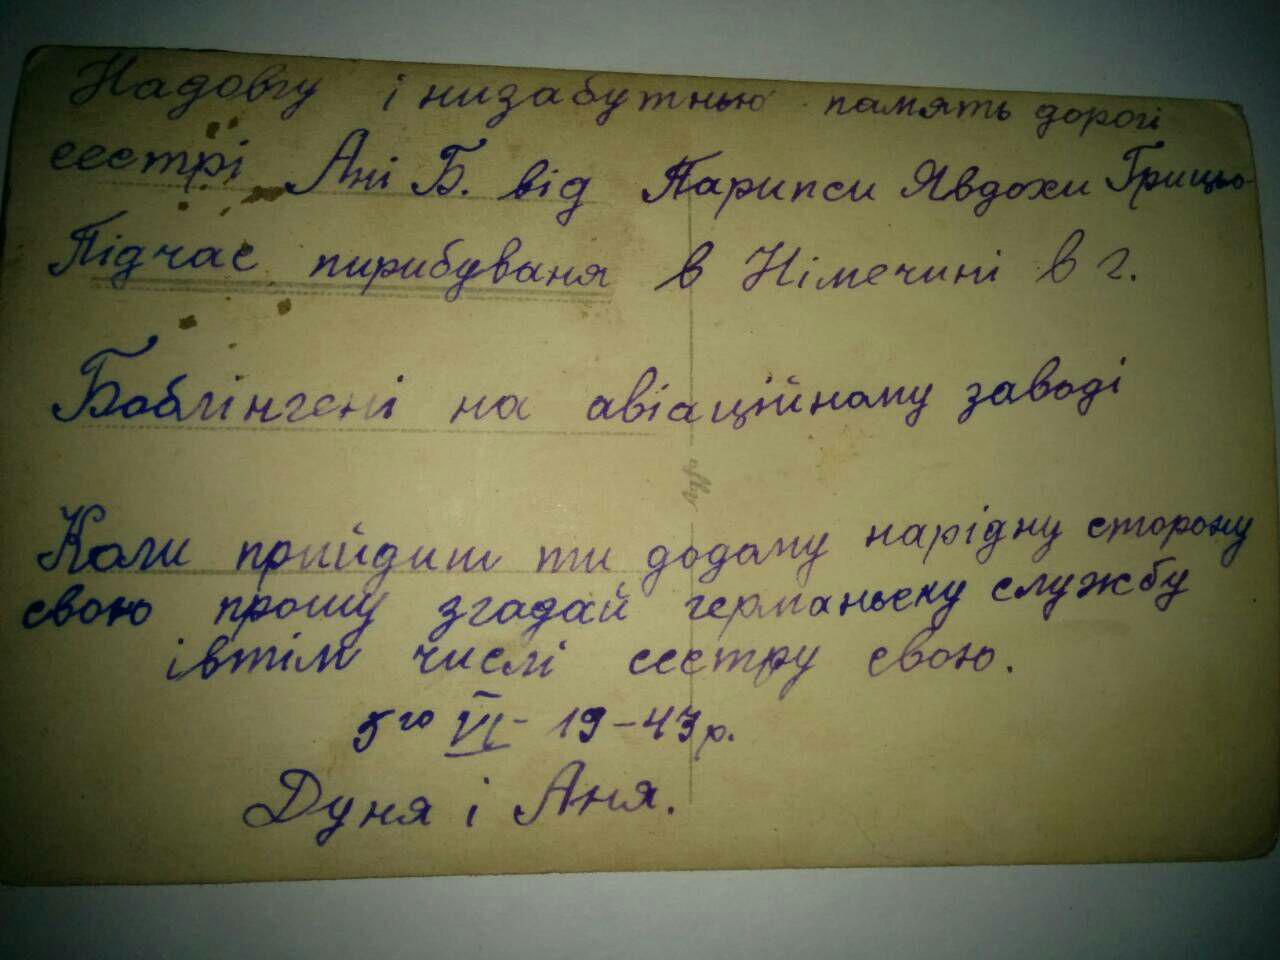 Надовгу і низабутнью память дорогі
сестрі Ані Б. від Парипси Явдохи Грицьо-
Підчас пирибуваня в Німечині в г.
Боблінгені на авіаційному заводі
Коли прийдиш ти додому нарідну сторону
свою прошу згадай германьску службу
івтім числі сестру свою.
5го VI - 19-43 р.
Дуня і Аня.